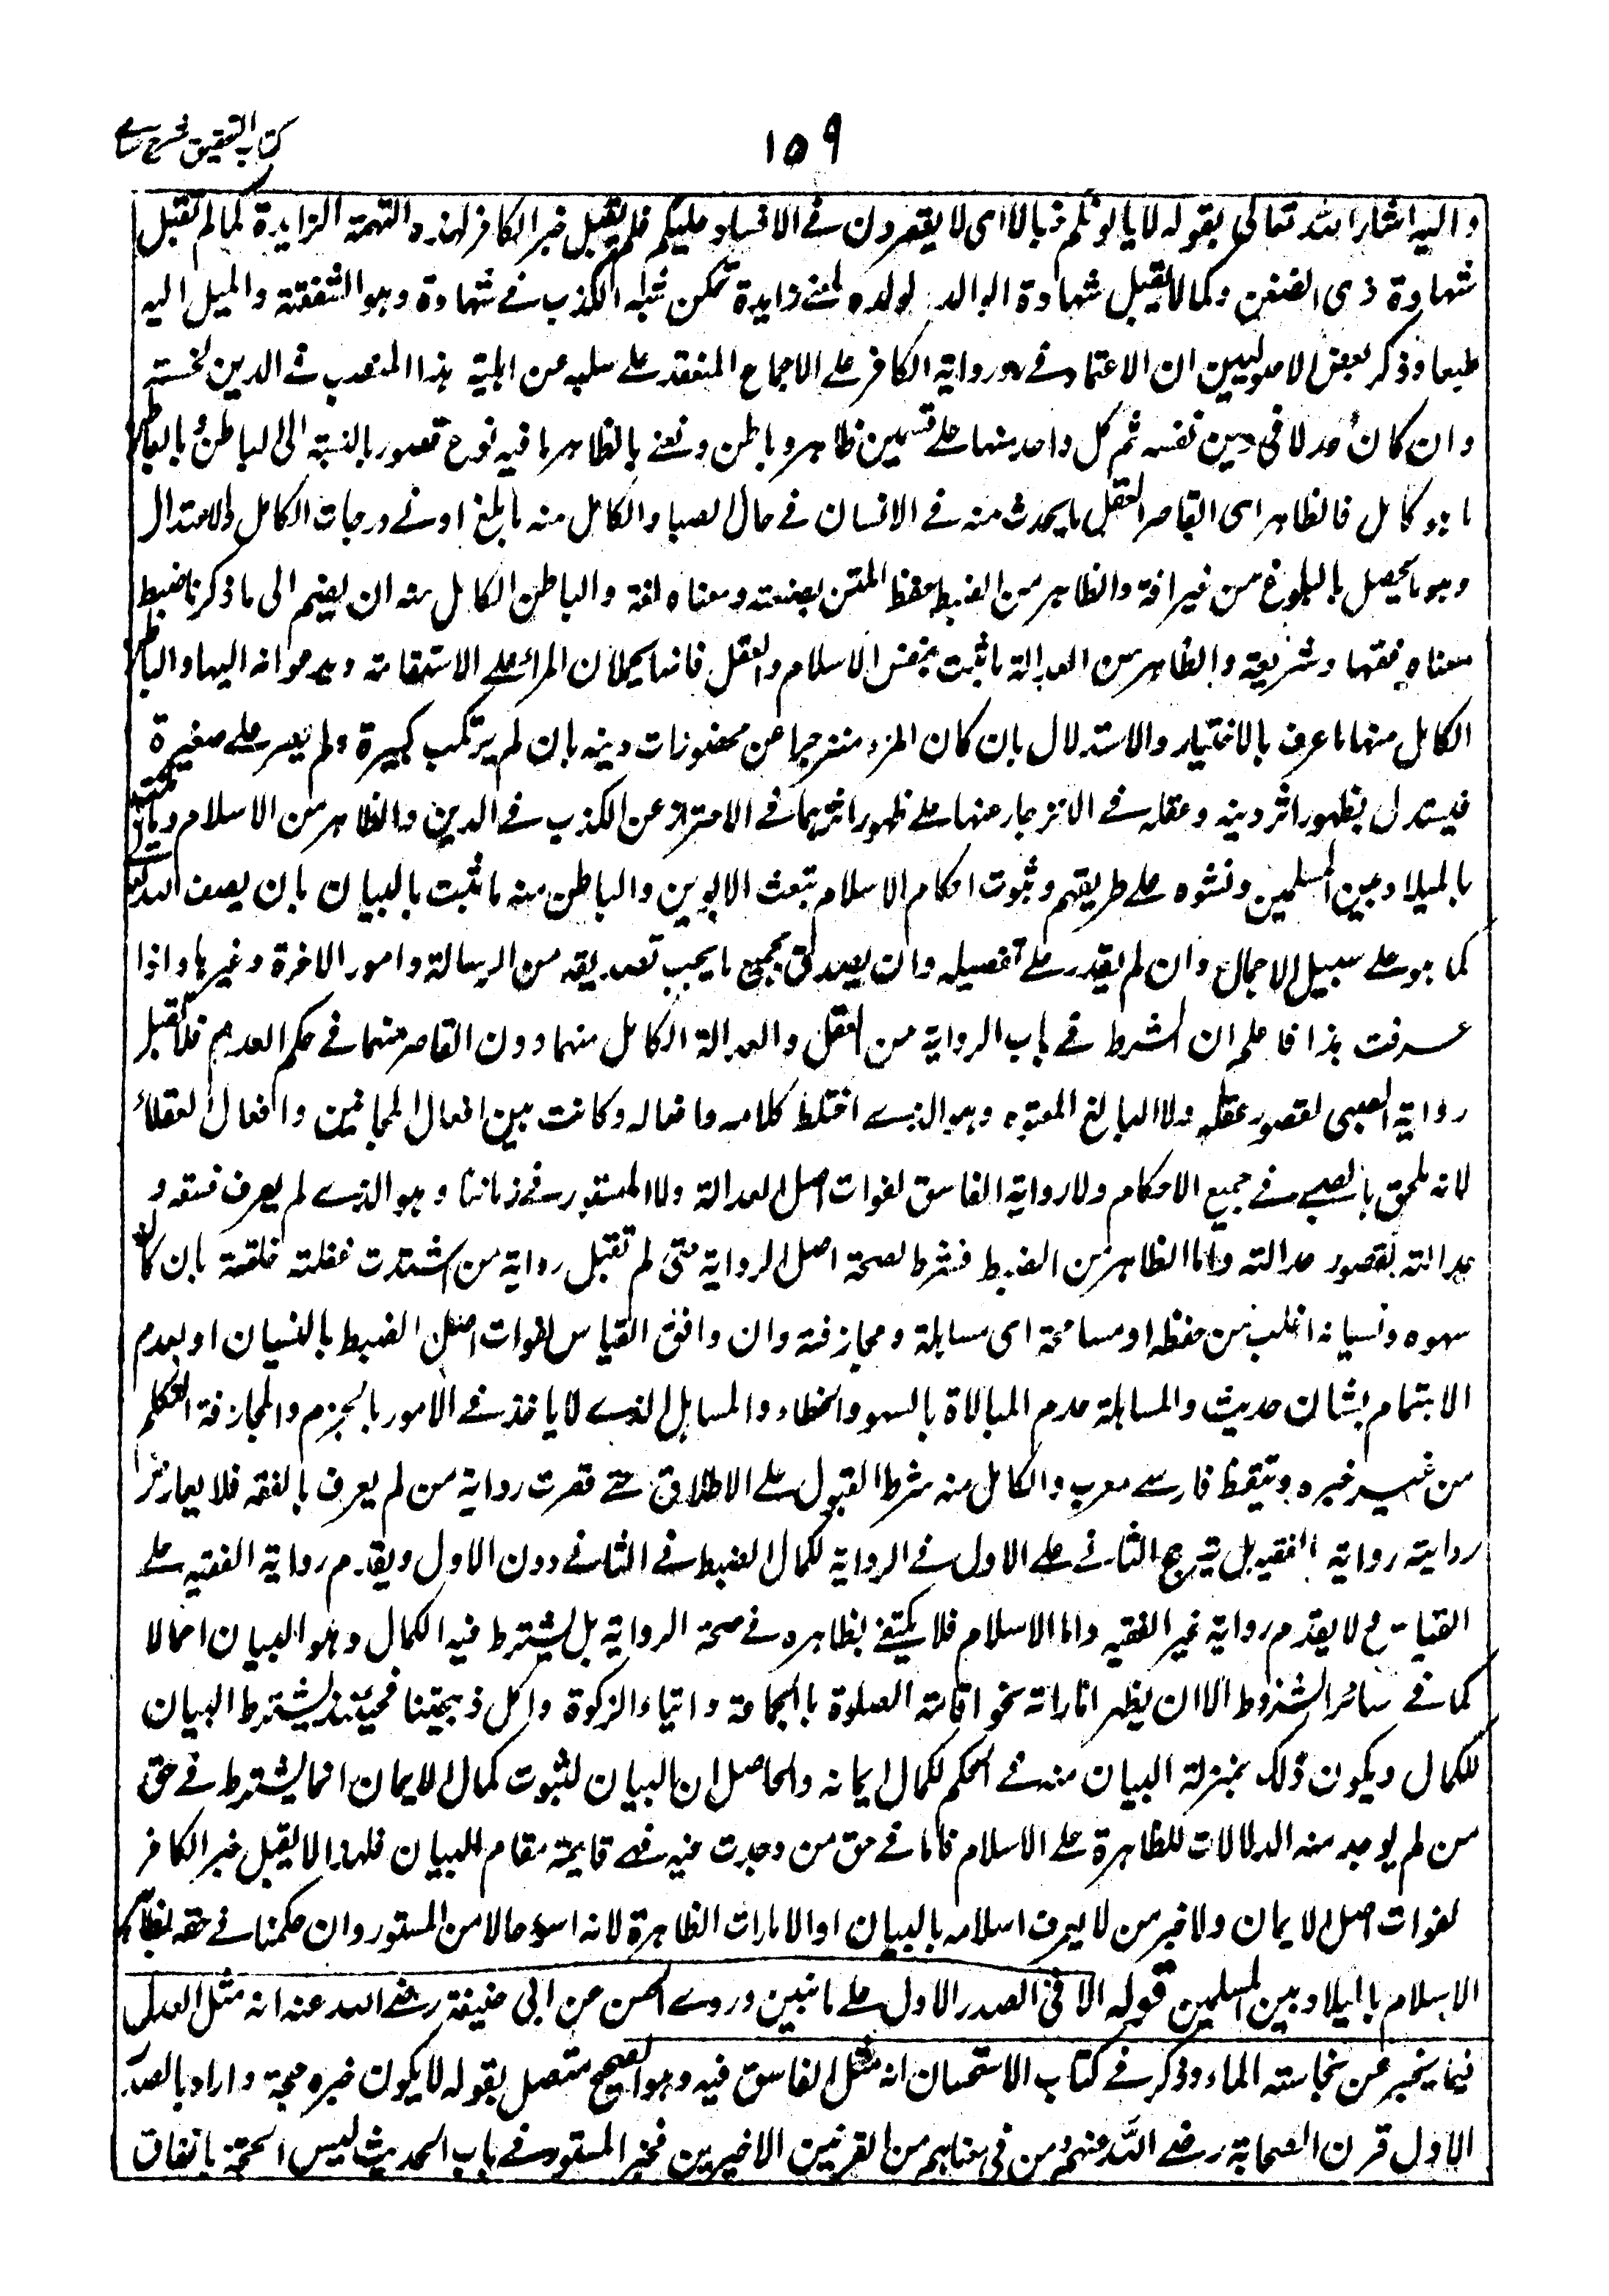 كتاب التحقيق شرح حسامي
١٥٩
واليه اشار الله تعالى بقوله لا يالونكم خبالا اى لا يقصرون فى الافساد عليكم فلم يقبل خبر الكافر لهذه التهمة الزايدة كما لم تقبل
شهادة ذى الضغن وكما لا يقبل شهادة الوالد لولده لمعنى زايدة تمكن تهمة الكذب فى شهادة وهو الشفقة والميل اليه
طبعا وذكر بعض الاصوليين ان الاعتماد فى رد رواية الكافر على الاجماع المنعقد على سلبه عن اهلية هذا المنصب فى الدين لخسته
وان كان عدلا فى دين نفسه ثم كل واحد منها على قسمين ظاهر وباطن ونعنى بالظاهر ما فيه نوع قصور بالنسبة الى الباطن وبالباطن
ما هو كامل فالظاهر اى القاصر العقل ما يحدث منه فى الانسان فى حال الصبا والكامل منه ما بلغ اونى درجات الكامل والاعتدال
وهو ما يحصل بالبلوغ من غير افة والظاهر من الضبط حفظ المتن بصنعته ومعناه لغة والباطن الكامل منه ان يضم الى ما ذكرنا ضبط
معناه فقها وشريعة والظاهر من العدالة ما ثبت بنفس الاسلام والعقل فانهما يحملان المرأ على الاستقامة ويدعوانه اليها والباطن
الكامل منها ما عرف بالاختيار والاستدلال بان كان المرء منزجرا عن محضورات دينه بان لم يرتكب كبيرة ولم يصر على صغيرة
فيستدل بظهور اثر دينه وعقله فى الانزجار عنها على ظهور اثرهما فى الاحتراز عن الكذب فى الدين والظاهر من الاسلام ما ثبت
بالميلاد بين المسلمين ونشوه على طريقهم وثبوت احكام الاسلام بتبعة الابوين والباطن منه ما ثبت بالبيان بان يصف الله تعالى
كما هو على سبيل الاجمال وان لم يقدر على تفصيله وان يصدق بجميع ما يجب تصديقه من الرسالة وامور الاخرة وغيرها واذا
عرفت هذا فاعلم ان الشرط فى باب الرواية من العقل والعدالة الكامل منهما دون القاصر منهما فى حكم العدم فلا تقبل
رواية الصبى لقصور عقله ولا البالغ المعتوه وهو الذى اختلط كلامه وافعاله وكانت بين افعال المجانين وافعال العقلاء
لانه ملحق بالصبى فى جميع الاحكام ولا رواية الفاسق لفوات اصل العدالة ولا المستور فى زماننا وهو الذى لم يعرف فسقه و
عدالته لقصور عدالته واما الظاهر من الضبط فشرط لصحة اصل الرواية حتى لم تقبل رواية من اشتدت غفلته خلقة بان كان
سهوه ونسيانه اغلب من حفظه او مسامحة اى مساهلة ومجازفة وان وافق القياس لفوات اصل الضبط بالنسيان او بعدم
الاهتمام بشان حديث والمساهلة عدم المبالاة بالسهو والخطاء والمساهل الذى لا ياخذ فى الامور بالجزم والمجازفة التكلم
من غير خبره وتيقظ فارسى معرب والكامل منه شرط القبول على الاطلاق حتى قصرت رواية من لم يعرف بالفقه فلا يعارض
روايته رواية الفقيه بل يترجح الثانى على الاول فى الرواية لكمال الضبط فى الثانى دون الاول ويقدم رواية الفقيه على
القياس ولا يقدم رواية غير الفقيه واما الاسلام فلا يكتفى بظاهره فى صحة الرواية بل يشترط فيه الكمال وهو البيان اجمالا
كما فى سائر الشروط الا ان يظهر اماراته نحو اقامة الصلوة بالجماعة وايتاء الزكوة واكل ذبيحتنا فحينئذ يشترط البيان
للكمال ويكون ذلك بمنزلة البيان منه فى الحكم لكمال ايمانه والحاصل ان البيان لثبوت كمال الايمان انما يشترط فى حق
من لم يوجد منه الدلالات الظاهرة على الاسلام فاما فى حق من وجدت فيه فهى قايمة مقام البيان فلهذا لا يقبل خبر الكافر
لفوات اصل الايمان ولا خبر من لا يعرف اسلامه بالبيان او الامارات الظاهرة لانه اسوء حالا من المستور وان حكمنا فى حقه بظاهر
الاسلام بالميلاد بين المسلمين قوله الا فى الصدر الاول على ما نبين وروى الحسن عن ابى حنيفة رضى الله عنه انه مثل العدل
فيما يخبر عن نجاسته الماء وذكر فى كتاب الاستحسان انه مثل الفاسق فيه وهو الصحيح متصل بقوله لا يكون خبره حجة واراد بالصدر
الاول قرن الصحابة رضى الله عنهم ومن فى معناهم من القرنين الاخيرين فخبر المستور فى باب الحديث ليس الحجة باتفاق